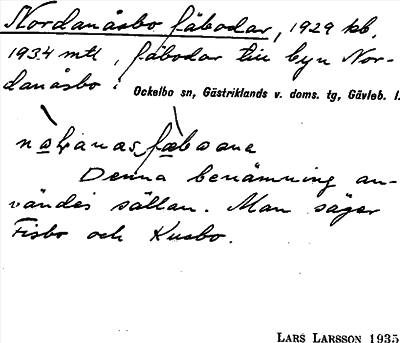 Nordanåsbo fäbodar, 1929 kb,
1934 mtl, fäbodar till byn Nor-
danåsbo i Ockelbo sn, Gästriklands v. doms. tg, Gävleb. l.
Denna benämning an-
vändes sällan. Man säger
Fisbo och Kusbo.
LARS LARSSON 1935